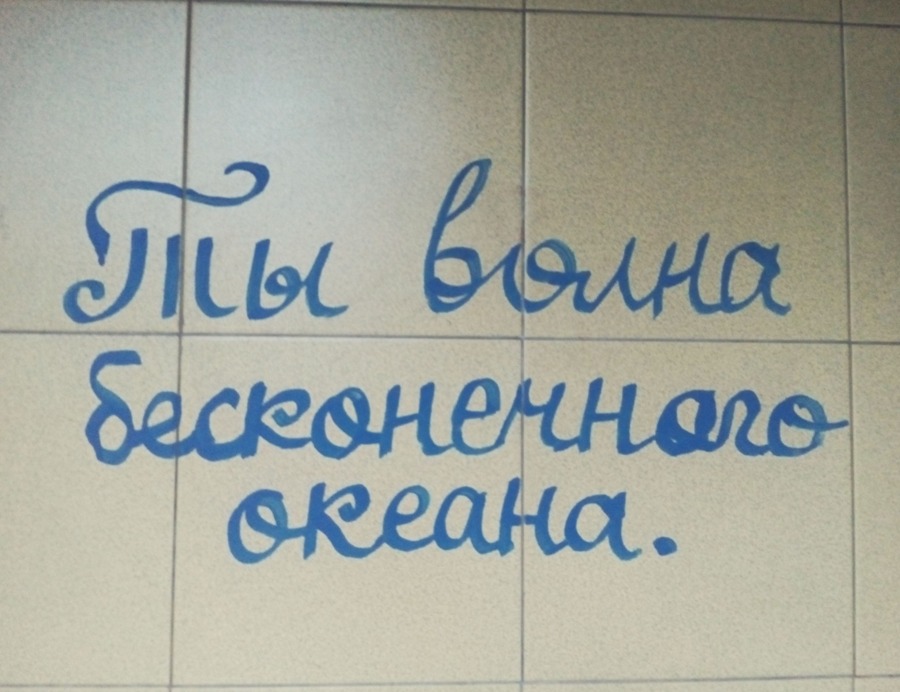 Ты волна
бесконечного
океана.